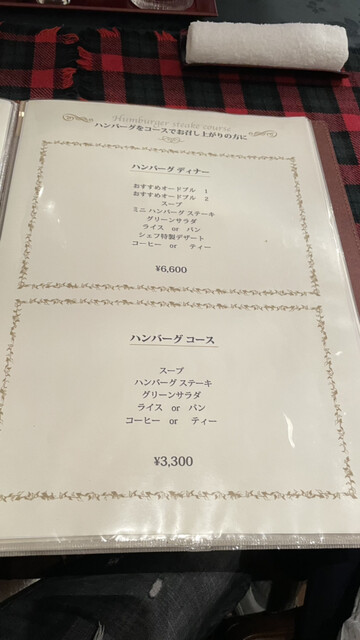 Hamburger steake course
ハンバーグをコースでお召し上がりの方に
ハンバーグ ディナー
おすすめオードブル 1
おすすめオードブル 2
スープ
ミニ ハンバーグ ステーキ
グリーンサラダ
ライス or パン
シェフ特製デザート
コーヒー or ティー
¥6,600
ハンバーグ コース
スープ
ハンバーグ ステーキ
グリーンサラダ
ライス or パン
コーヒー or ティー
¥3,300